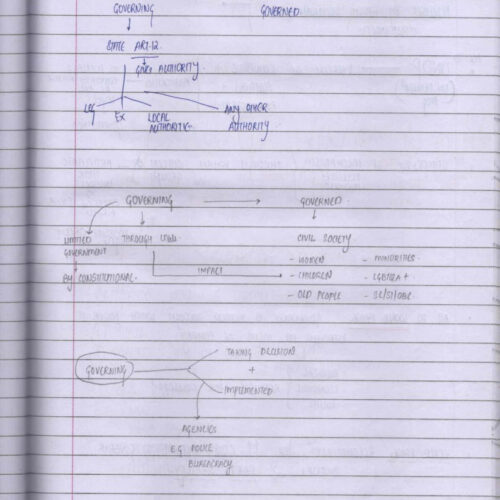 GOVERNING GOVERNED
STATE ART-12
GOVT AUTHORITY
LEG EX LOCAL AUTHORITIES ANY OTHER AUTHORITY
GOVERNING GOVERNED
LIMITED GOVERNMENT THROUGH LAW CIVIL SOCIETY
- WOMEN - MINORITIES
BY CONSTITUTIONAL. IMPACT - CHILDREN - LGBTQIA+
- OLD PEOPLE - SC/ST/OBC
TAKING DECISION
GOVERNING +
IMPLEMENTED
AGENCIES
E.G. POLICE
BUREACRACY